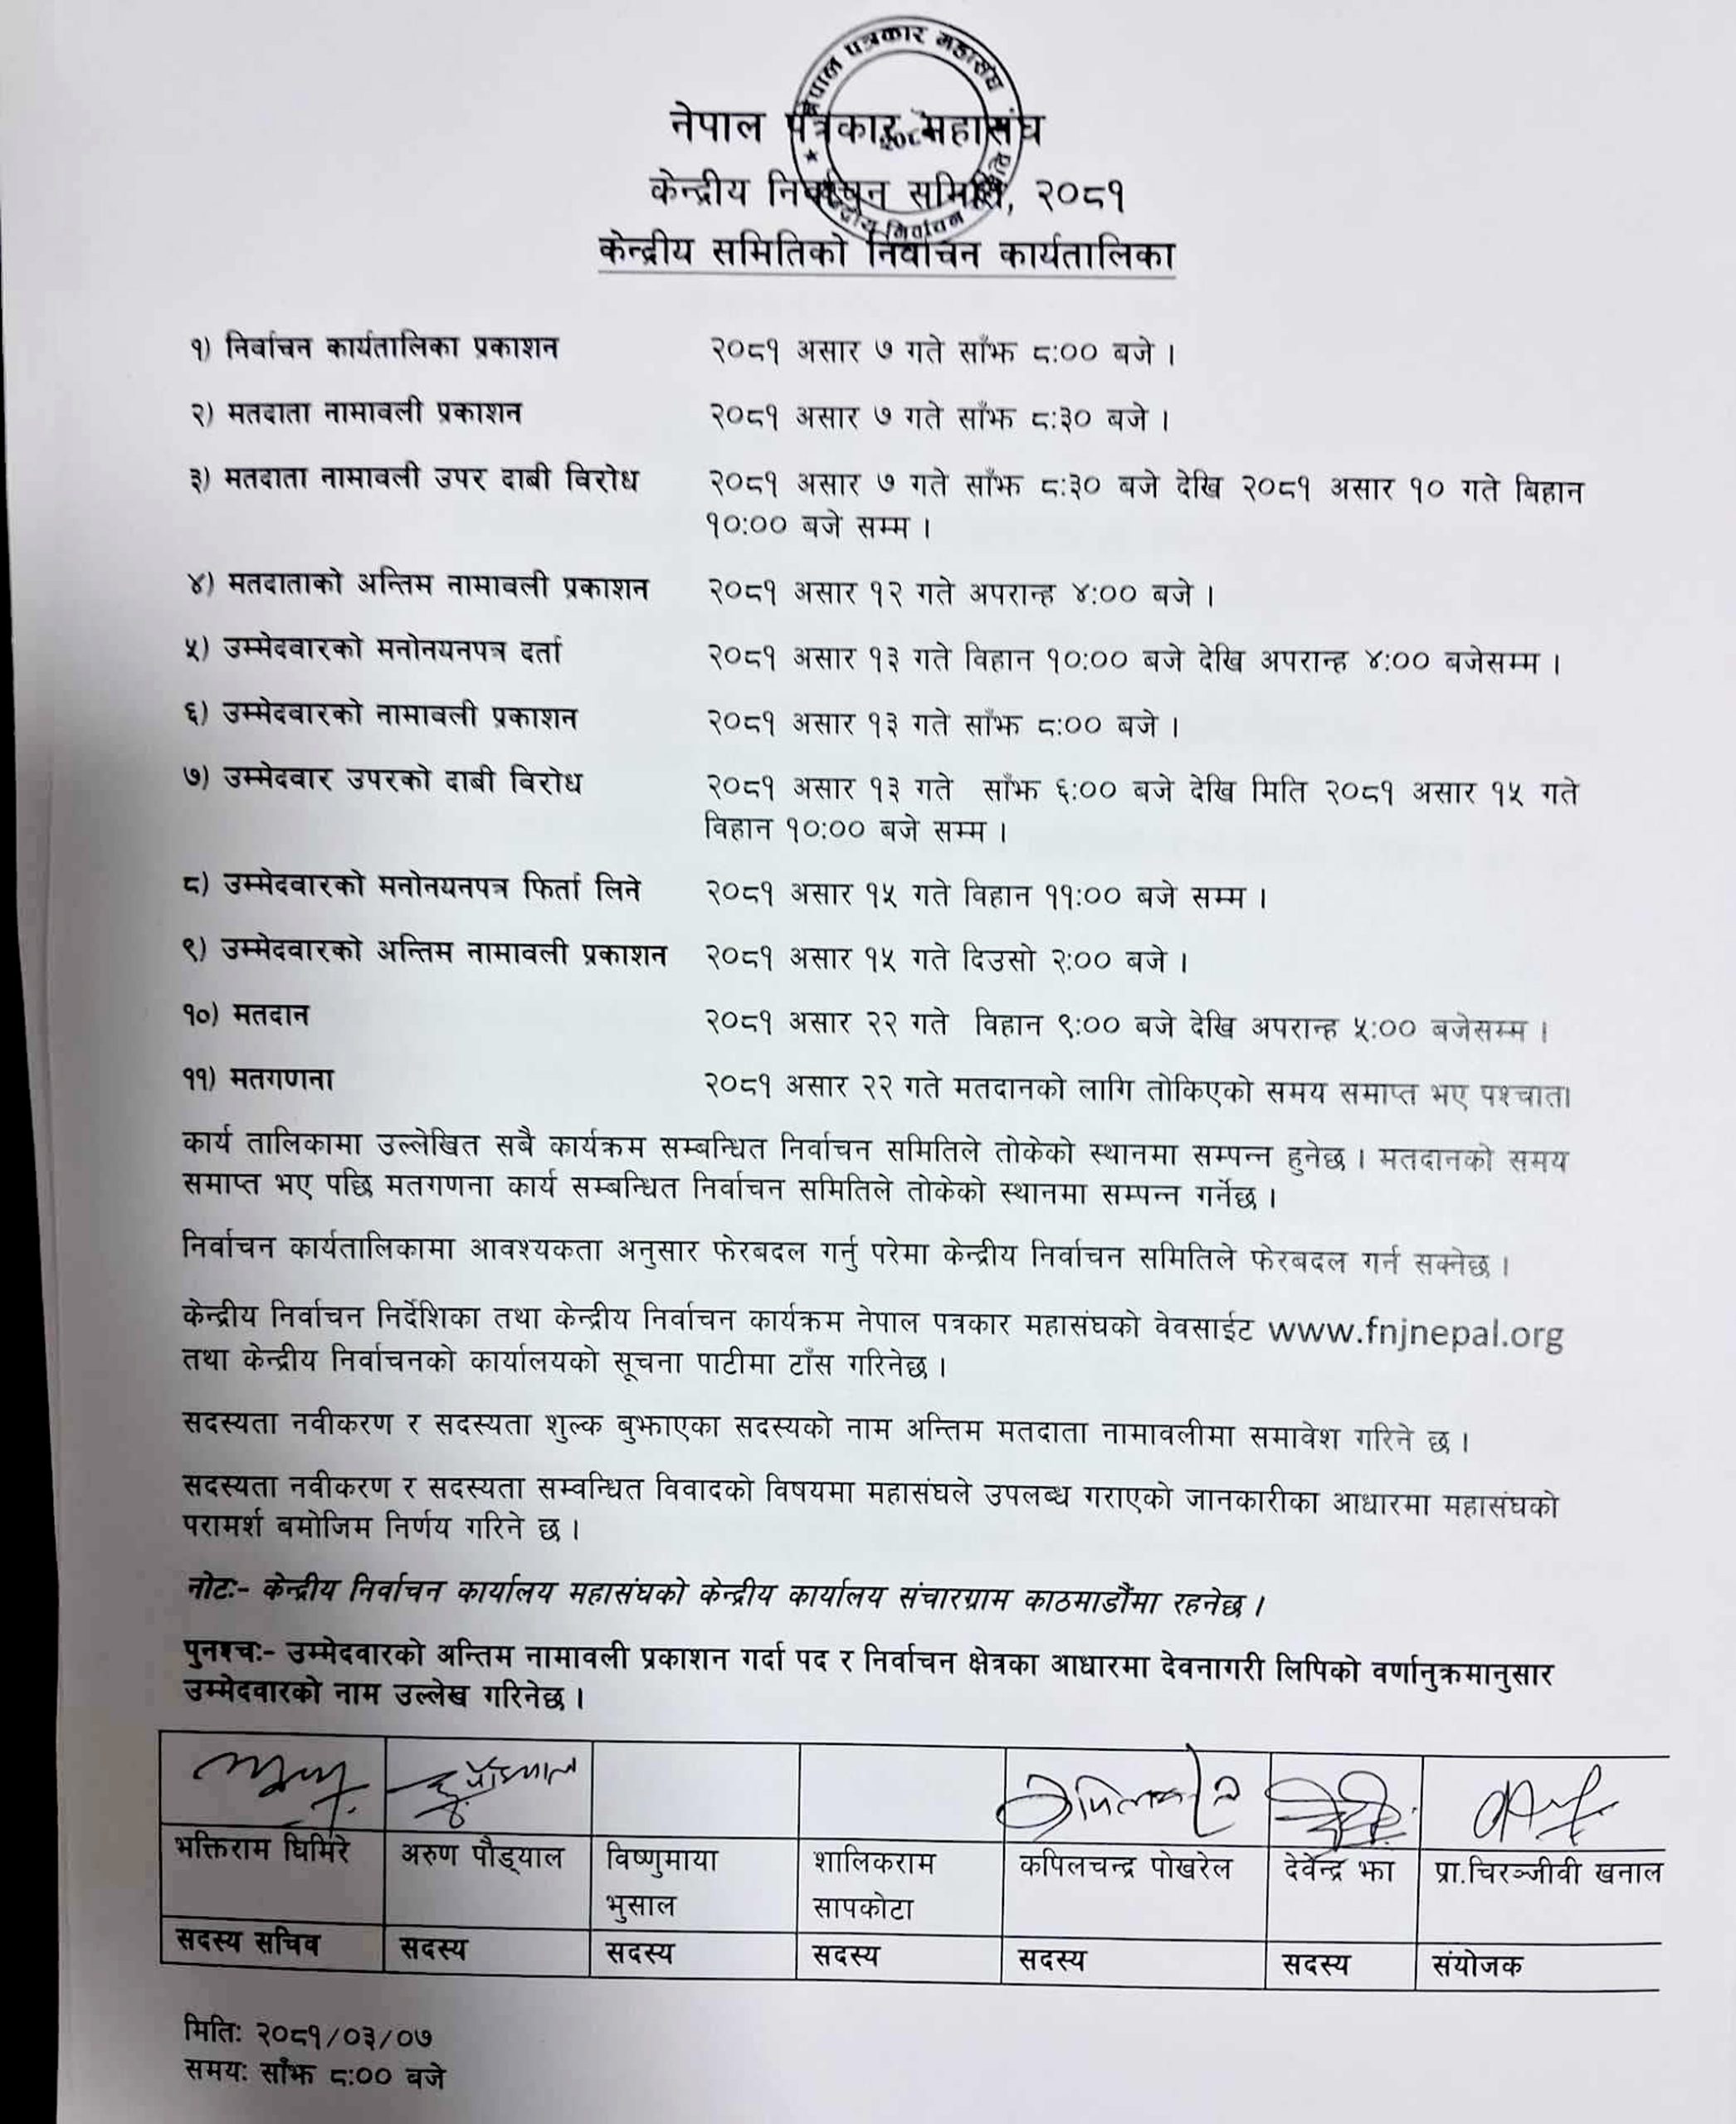 नेपाल पत्रकार महासंघ
नेपाल पत्रकार महासंघ
केन्द्रीय निर्वाचन समिति, २०८१
केन्द्रीय निर्वाचन
केन्द्रीय समितिको निर्वाचन कार्यतालिका
१) निर्वाचन कार्यतालिका प्रकाशन २०८१ असार ७ गते साँझ ८:०० बजे ।
२) मतदाता नामावली प्रकाशन २०८१ असार ७ गते साँझ ८:३० बजे ।
३) मतदाता नामावली उपर दाबी विरोध २०८१ असार ७ गते साँझ ८:३० बजे देखि २०८१ असार १० गते बिहान
१०:०० बजे सम्म ।
४) मतदाताको अन्तिम नामावली प्रकाशन २०८१ असार १२ गते अपरान्ह ४:०० बजे ।
५) उम्मेदवारको मनोनयनपत्र दर्ता २०८१ असार १३ गते विहान १०:०० बजे देखि अपरान्ह ४:०० बजेसम्म ।
६) उम्मेदवारको नामावली प्रकाशन २०८१ असार १३ गते साँझ ८:०० बजे ।
७) उम्मेदवार उपरको दाबी विरोध २०८१ असार १३ गते साँझ ६:०० बजे देखि मिति २०८१ असार १५ गते
विहान १०:०० बजे सम्म ।
८) उम्मेदवारको मनोनयनपत्र फिर्ता लिने २०८१ असार १५ गते विहान ११:०० बजे सम्म ।
९) उम्मेदवारको अन्तिम नामावली प्रकाशन २०८१ असार १५ गते दिउसो २:०० बजे ।
१०) मतदान २०८१ असार २२ गते विहान ९:०० बजे देखि अपरान्ह ५:०० बजेसम्म ।
११) मतगणना २०८१ असार २२ गते मतदानको लागि तोकिएको समय समाप्त भए पश्चात।
कार्य तालिकामा उल्लेखित सबै कार्यक्रम सम्बन्धित निर्वाचन समितिले तोकेको स्थानमा सम्पन्न हुनेछ । मतदानको समय
समाप्त भए पछि मतगणना कार्य सम्बन्धित निर्वाचन समितिले तोकेको स्थानमा सम्पन्न गर्नेछ ।
निर्वाचन कार्यतालिकामा आवश्यकता अनुसार फेरबदल गर्नु परेमा केन्द्रीय निर्वाचन समितिले फेरबदल गर्न सक्नेछ ।
केन्द्रीय निर्वाचन निर्देशिका तथा केन्द्रीय निर्वाचन कार्यक्रम नेपाल पत्रकार महासंघको वेवसाईट www.fnjnepal.org
तथा केन्द्रीय निर्वाचनको कार्यालयको सूचना पाटीमा टाँस गरिनेछ ।
सदस्यता नवीकरण र सदस्यता शुल्क बुझाएका सदस्यको नाम अन्तिम मतदाता नामावलीमा समावेश गरिने छ ।
सदस्यता नवीकरण र सदस्यता सम्वन्धित विवादको विषयमा महासंघले उपलब्ध गराएको जानकारीका आधारमा महासंघको
परामर्श बमोजिम निर्णय गरिने छ ।
नोटः- केन्द्रीय निर्वाचन कार्यालय महासंघको केन्द्रीय कार्यालय संचारग्राम काठमाडौंमा रहनेछ ।
पुनश्चः- उम्मेदवारको अन्तिम नामावली प्रकाशन गर्दा पद र निर्वाचन क्षेत्रका आधारमा देवनागरी लिपिको वर्णानुक्रमानुसार
उम्मेदवारको नाम उल्लेख गरिनेछ ।
भक्तिराम घिमिरे अरुण पौड्याल विष्णुमाया शालिकराम कपिलचन्द्र पोखरेल देवेन्द्र झा प्रा.चिरञ्जीवी खनाल
भुसाल सापकोटा
सदस्य सचिव सदस्य सदस्य सदस्य सदस्य सदस्य संयोजक
मिति: २०८१/०३/०७
समय: साँझ ८:०० बजे